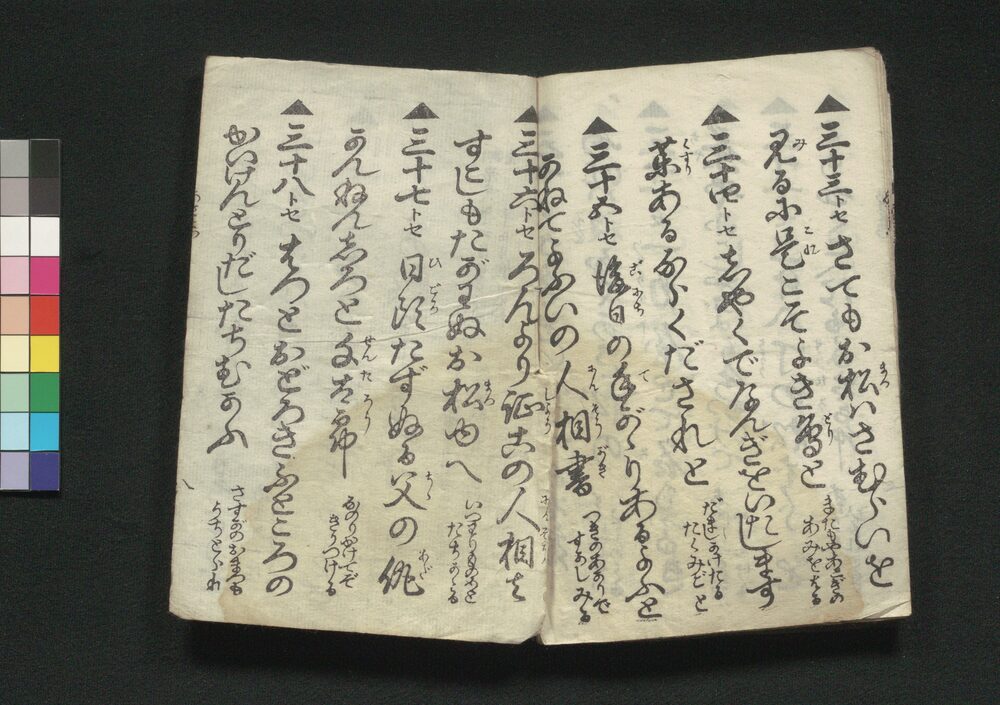 ▲三十三トセさてもお松はさむらいを
見るに是こそよき鳥と
またもやあこぎの
あみをはる
▲三十四トセしやくでなんぎをいたします
薬あるならくだされと
だましかけたる
たくみごと
▲三十五トセ後日の手がゝりあるよふと
かねてよふいの人相書
つきのあかりで
すかしみる
▲三十六トセろんより証古の人相に
すこしもたがわぬお松ゆへ
いつわりものめと
たちかゝる
▲三十七トセ日頃たずぬる父の仇
かんねんしろと
せんたろう
なのりかけてぞ
きりつける
▲三十八トセはつとおどろきふところの
かいけんとりだしたちむかふ
さすがのおまつも
うちとられ